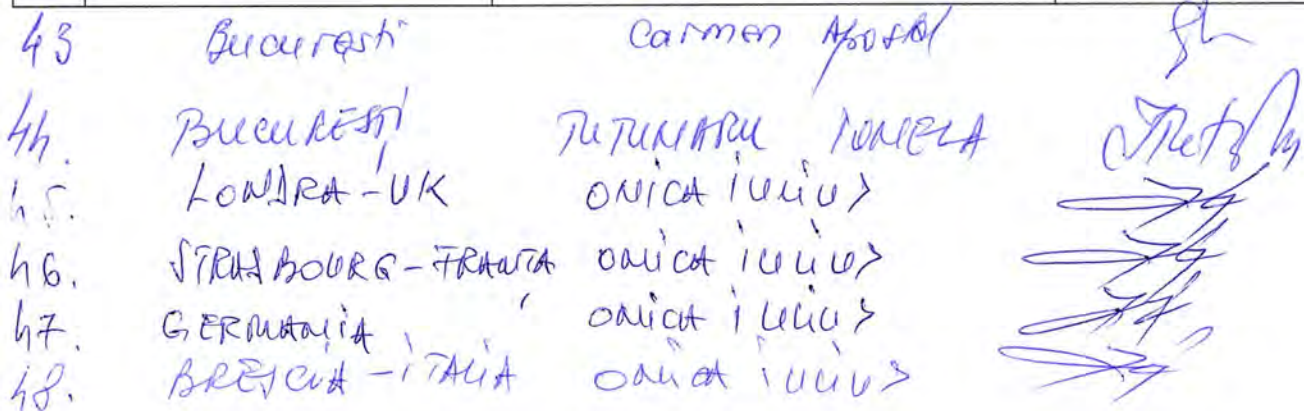 43 București Carmen Apostol
44. BUCUREȘTI TUTUNARU IONELA
45. LONDRA-UK ONICA iuliu
46. STRASBOURG-FRANȚA ONICA iuliu
47. GERMANIA ONICA iuliu
48. BRESCIA-iTALIA ONICA iuliu